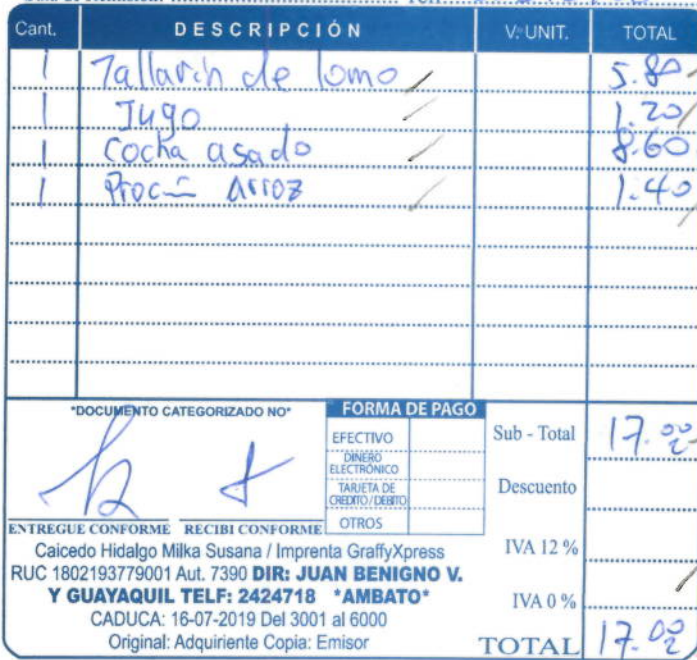 Cant. DESCRIPCIÓN V. UNIT. TOTAL
1 Tallarin de lomo 5.80
1 Jugo 1.20
1 Cocha asado 8.60
1 Arroz 1.40
*DOCUMENTO CATEGORIZADO NO*
FORMA DE PAGO
EFECTIVO
DINERO ELECTRÓNICO
TARJETA DE CREDITO / DEBITO
OTROS
ENTREGUE CONFORME RECIBI CONFORME
Sub - Total 17.00
Descuento
IVA 12 %
IVA 0 %
TOTAL 17.00
Caicedo Hidalgo Milka Susana / Imprenta GraffyXpress
RUC 1802193779001 Aut. 7390 DIR: JUAN BENIGNO V.
Y GUAYAQUIL TELF: 2424718 *AMBATO*
CADUCA: 16-07-2019 Del 3001 al 6000
Original: Adquiriente Copia: Emisor